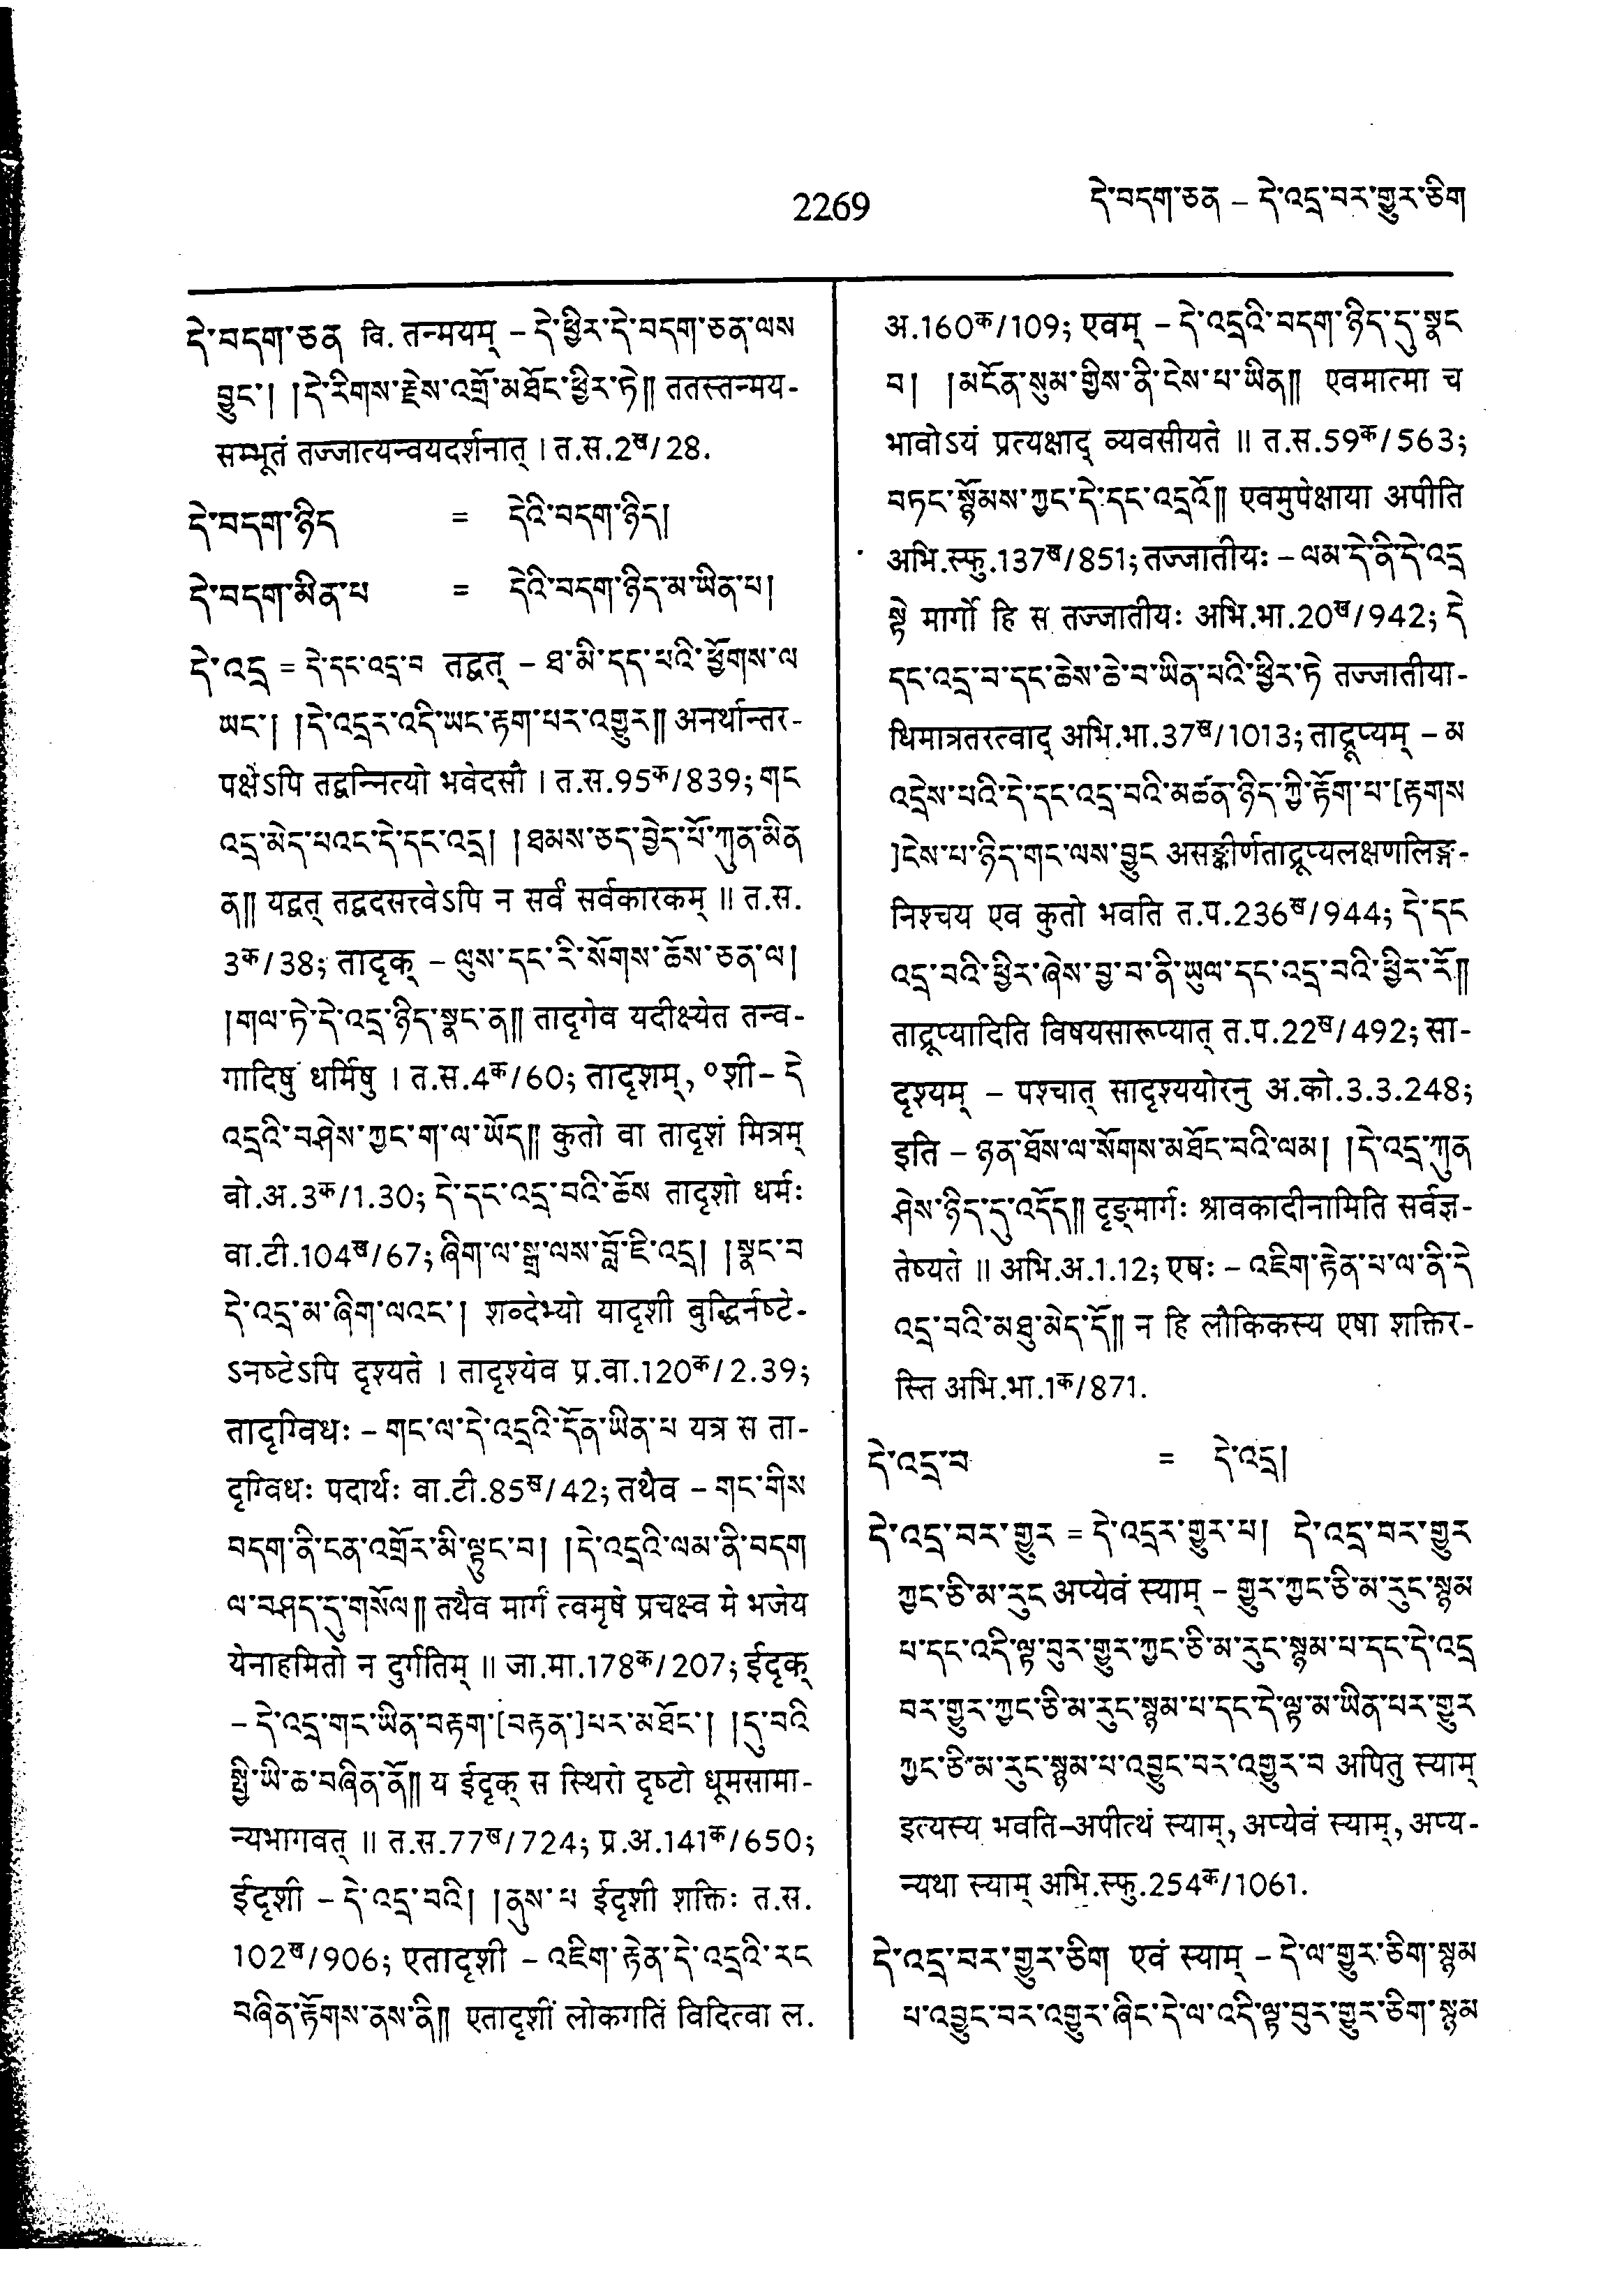 2269
དེ་བདག་ཅན – དེ་འདྲ་བར་གྱུར་ཅིག
དེ་བདག་ཅན वि. तन्मयम् – དེ་ཕྱིར་དེ་བདག་ཅན་ལས
བྱུང་། །དེ་རིགས་རྗེས་འགྲོ་མཐོང་ཕྱིར་ཏེ༎ ततस्तन्मय-
सम्भूतं तज्जात्यन्वयदर्शनात् । त.स.2ख/28.
དེ་བདག་ཉིད = དེའི་བདག་ཉིད།
དེ་བདག་མིན་པ = དེའི་བདག་ཉིད་མ་ཡིན་པ།
དེ་འདྲ = དེ་དང་འདྲ་བ तद्वत् – ཐ་མི་དད་པའི་ཕྱོགས་ལ
ཡང་། །དེ་འདྲར་འདི་ཡང་རྟག་པར་འགྱུར༎ अनर्थान्तर-
पक्षेऽपि तद्वन्नित्यो भवेदसौ । त.स.95क/839; གང
འདྲ་མེད་པའང་དེ་དང་འདྲ། །ཐམས་ཅད་བྱེད་པོ་ཀུན་མིན
ན༎ यद्वत् तद्वदसत्त्वेऽपि न सर्वं सर्वकारकम् ॥ त.स.
3क/38; तादृक् – ལུས་དང་རི་སོགས་ཆོས་ཅན་ལ།
།གལ་ཏེ་དེ་འདྲ་ཉིད་སྣང་ན༎ तादृगेव यदीक्ष्येत तन्व-
गादिषु धर्मिषु । त.स.4क/60; तादृशम्, ०शी– དེ
འདྲའི་བཤེས་ཀྱང་ག་ལ་ཡོད༎ कुतो वा तादृशं मित्रम्
बो.अ.3क/1.30; དེ་དང་འདྲ་བའི་ཆོས तादृशो धर्मः
वा.टी.104ख/67; ཞིག་ལ་སྒྲ་ལས་བློ་ཇི་འདྲ། །སྣང་བ
དེ་འདྲ་མ་ཞིག་ལའང་། शब्देभ्यो यादृशी बुद्धिर्नष्टे-
ऽनष्टेऽपि दृश्यते । तादृश्येव प्र.वा.120क/2.39;
तादृग्विधः – གང་ལ་དེ་འདྲའི་དོན་ཡིན་པ यत्र स ता-
दृग्विधः पदार्थः वा.टी.85ख/42; तथैव – གང་གིས
བདག་ནི་ངན་འགྲོར་མི་ལྟུང་བ། །དེ་འདྲའི་ལམ་ནི་བདག
ལ་བཤད་དུ་གསོལ༎ तथैव मार्गं त्वमृषे प्रचक्ष्व मे भजेय
येनाहमितो न दुर्गतिम् ॥ जा.मा.178क/207; ईदृक्
– དེ་འདྲ་གང་ཡིན་བརྟག་[བརྟན་]པར་མཐོང་། །དུ་བའི
སྤྱི་ཡི་ཆ་བཞིན་ནོ༎ य ईदृक् स स्थिरो दृष्टो धूमसामा-
न्यभागवत् ॥ त.स.77ख/724; प्र.अ.141क/650;
ईदृशी – དེ་འདྲ་བའི། །ནུས་པ ईदृशी शक्तिः त.स.
102ख/906; एतादृशी – འཇིག་རྟེན་དེ་འདྲའི་རང
བཞིན་རྟོགས་ནས་ནི༎ एतादृशीं लोकगतिं विदित्वा ल.
अ.160क/109; एवम् – དེ་འདྲའི་བདག་ཉིད་དུ་སྣང
བ། །མངོན་སུམ་གྱིས་ནི་ངེས་པ་ཡིན༎ एवमात्मा च
भावोऽयं प्रत्यक्षाद् व्यवसीयते ॥ त.स.59क/563;
བཏང་སྙོམས་ཀྱང་དེ་དང་འདྲའོ༎ एवमुपेक्षाया अपीति
अभि.स्फु.137ख/851; तज्जातीयः – ལམ་དེ་ནི་དེ་འདྲ
སྟེ मार्गो हि स तज्जातीयः अभि.भा.20ख/942; དེ
དང་འདྲ་བ་དང་ཆེས་ཆེ་བ་ཡིན་པའི་ཕྱིར་ཏེ तज्जातीया-
धिमात्रतरत्वाद् अभि.भा.37ख/1013; ताद्रूप्यम् – མ
འདྲེས་པའི་དེ་དང་འདྲ་བའི་མཚན་ཉིད་ཀྱི་རྟོག་པ་[རྟགས
]ངེས་པ་ཉིད་གང་ལས་བྱུང असङ्कीर्णताद्रूप्यलक्षणलिङ्ग-
निश्चय एव कुतो भवति त.प.236ख/944; དེ་དང
འདྲ་བའི་ཕྱིར་ཞེས་བྱ་བ་ནི་ཡུལ་དང་འདྲ་བའི་ཕྱིར་རོ༎
ताद्रूप्यादिति विषयसारूप्यात् त.प.22ख/492; सा-
दृश्यम् – पश्चात् सादृश्ययोरनु अ.को.3.3.248;
इति – ཉན་ཐོས་ལ་སོགས་མཐོང་བའི་ལམ། །དེ་འདྲ་ཀུན
ཤེས་ཉིད་དུ་འདོད༎ दृङ्मार्गः श्रावकादीनामिति सर्वज्ञ-
तेष्यते ॥ अभि.अ.1.12; एषः – འཇིག་རྟེན་པ་ལ་ནི་དེ
འདྲ་བའི་མཐུ་མེད་དོ༎ न हि लौकिकस्य एषा शक्तिर-
स्ति अभि.भा.1क/871.
དེ་འདྲ་བ = དེ་འདྲ།
དེ་འདྲ་བར་གྱུར = དེ་འདྲར་གྱུར་པ། དེ་འདྲ་བར་གྱུར
ཀྱང་ཅི་མ་རུང अप्येवं स्याम् – གྱུར་ཀྱང་ཅི་མ་རུང་སྙམ
པ་དང་འདི་ལྟ་བུར་གྱུར་ཀྱང་ཅི་མ་རུང་སྙམ་པ་དང་དེ་འདྲ
བར་གྱུར་ཀྱང་ཅི་མ་རུང་སྙམ་པ་དང་དེ་ལྟ་མ་ཡིན་པར་གྱུར
ཀྱང་ཅི་མ་རུང་སྙམ་པ་འབྱུང་བར་འགྱུར་བ अपितु स्याम्
इत्यस्य भवति–अपीत्थं स्याम्, अप्येवं स्याम्, अप्य-
न्यथा स्याम् अभि.स्फु.254क/1061.
དེ་འདྲ་བར་གྱུར་ཅིག एवं स्याम् – དེ་ལ་གྱུར་ཅིག་སྙམ
པ་འབྱུང་བར་འགྱུར་ཞིང་དེ་ལ་འདི་ལྟ་བུར་གྱུར་ཅིག་སྙམ